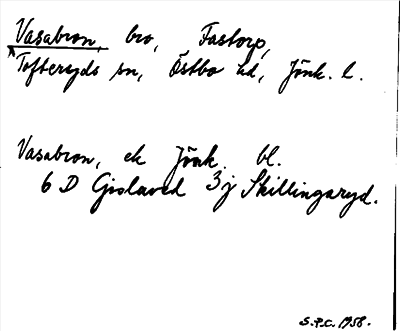 Vasabron, bro, Fastorp,
Tofteryds sn, Östbo hd, Jönk. l.
Vasabron, ek Jönk. bl.
6 D Gislaved 3j Skillingaryd.
S.P.C. 1958.